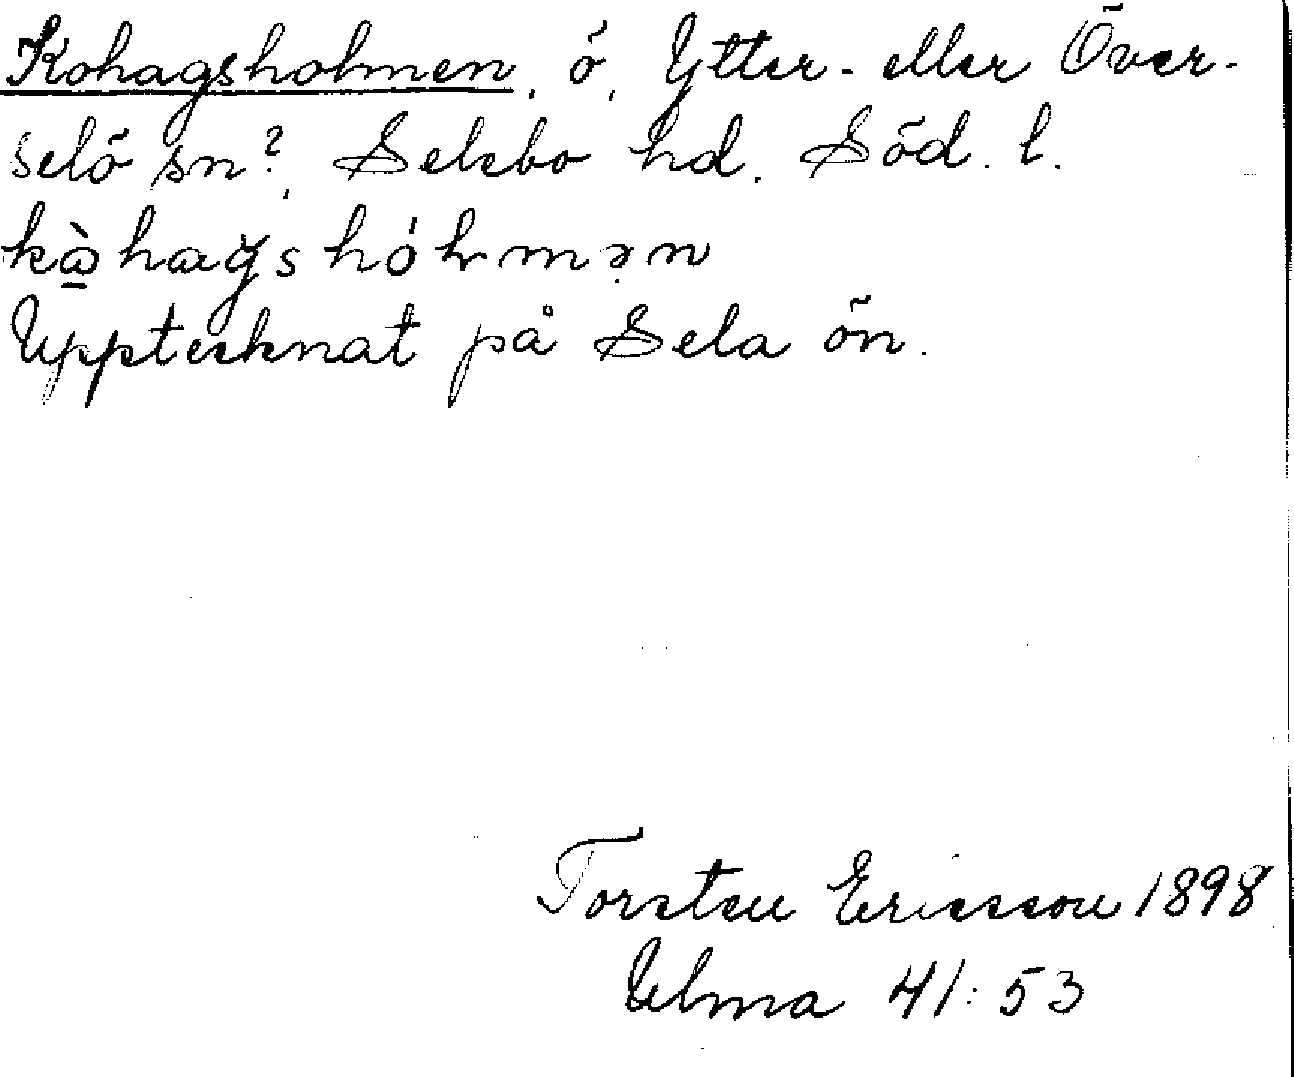 Kohagsholmen, ö, Ytter- eller Över-
selö sn?, Selebo hd. Söd. l.
kò̱hağshólmən
Upptecknat på Sela ön.
Torsten Ericsson 1898
Ulma 41:53